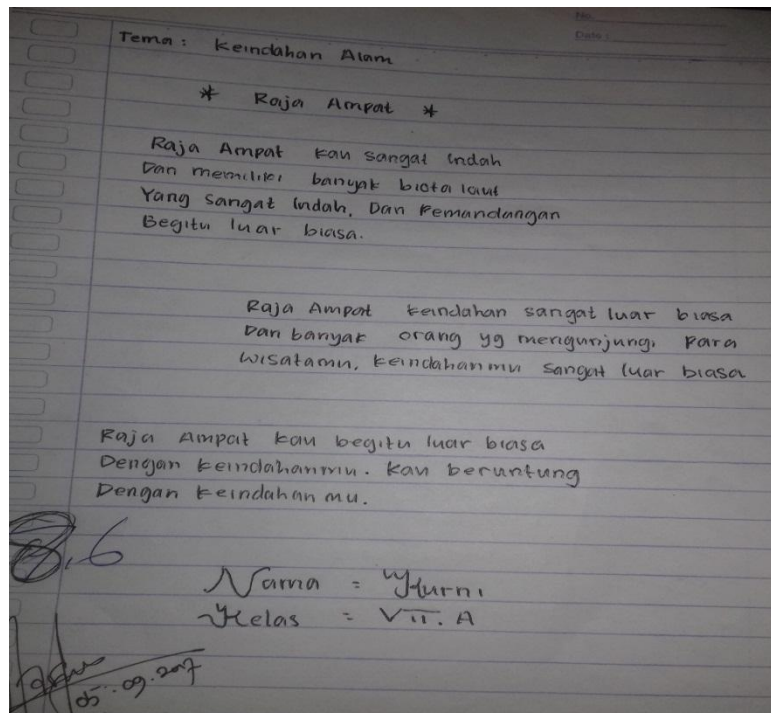 No.
Date :
Tema : Keindahan Alam
* Raja Ampat *
Raja Ampat kau sangat indah
Dan memiliki banyak biota laut
Yang sangat indah, Dan Pemandangan
Begitu luar biasa.
Raja Ampat keindahan sangat luar biasa
Dan banyak orang yg mengunjungi Para
Wisatamu, keindahanmu sangat luar biasa
Raja Ampat kau begitu luar biasa
Dengan keindahanmu. Kau beruntung
Dengan keindahan mu.
8.6
Nama = Hurni
Kelas = VII. A
05.09.2017